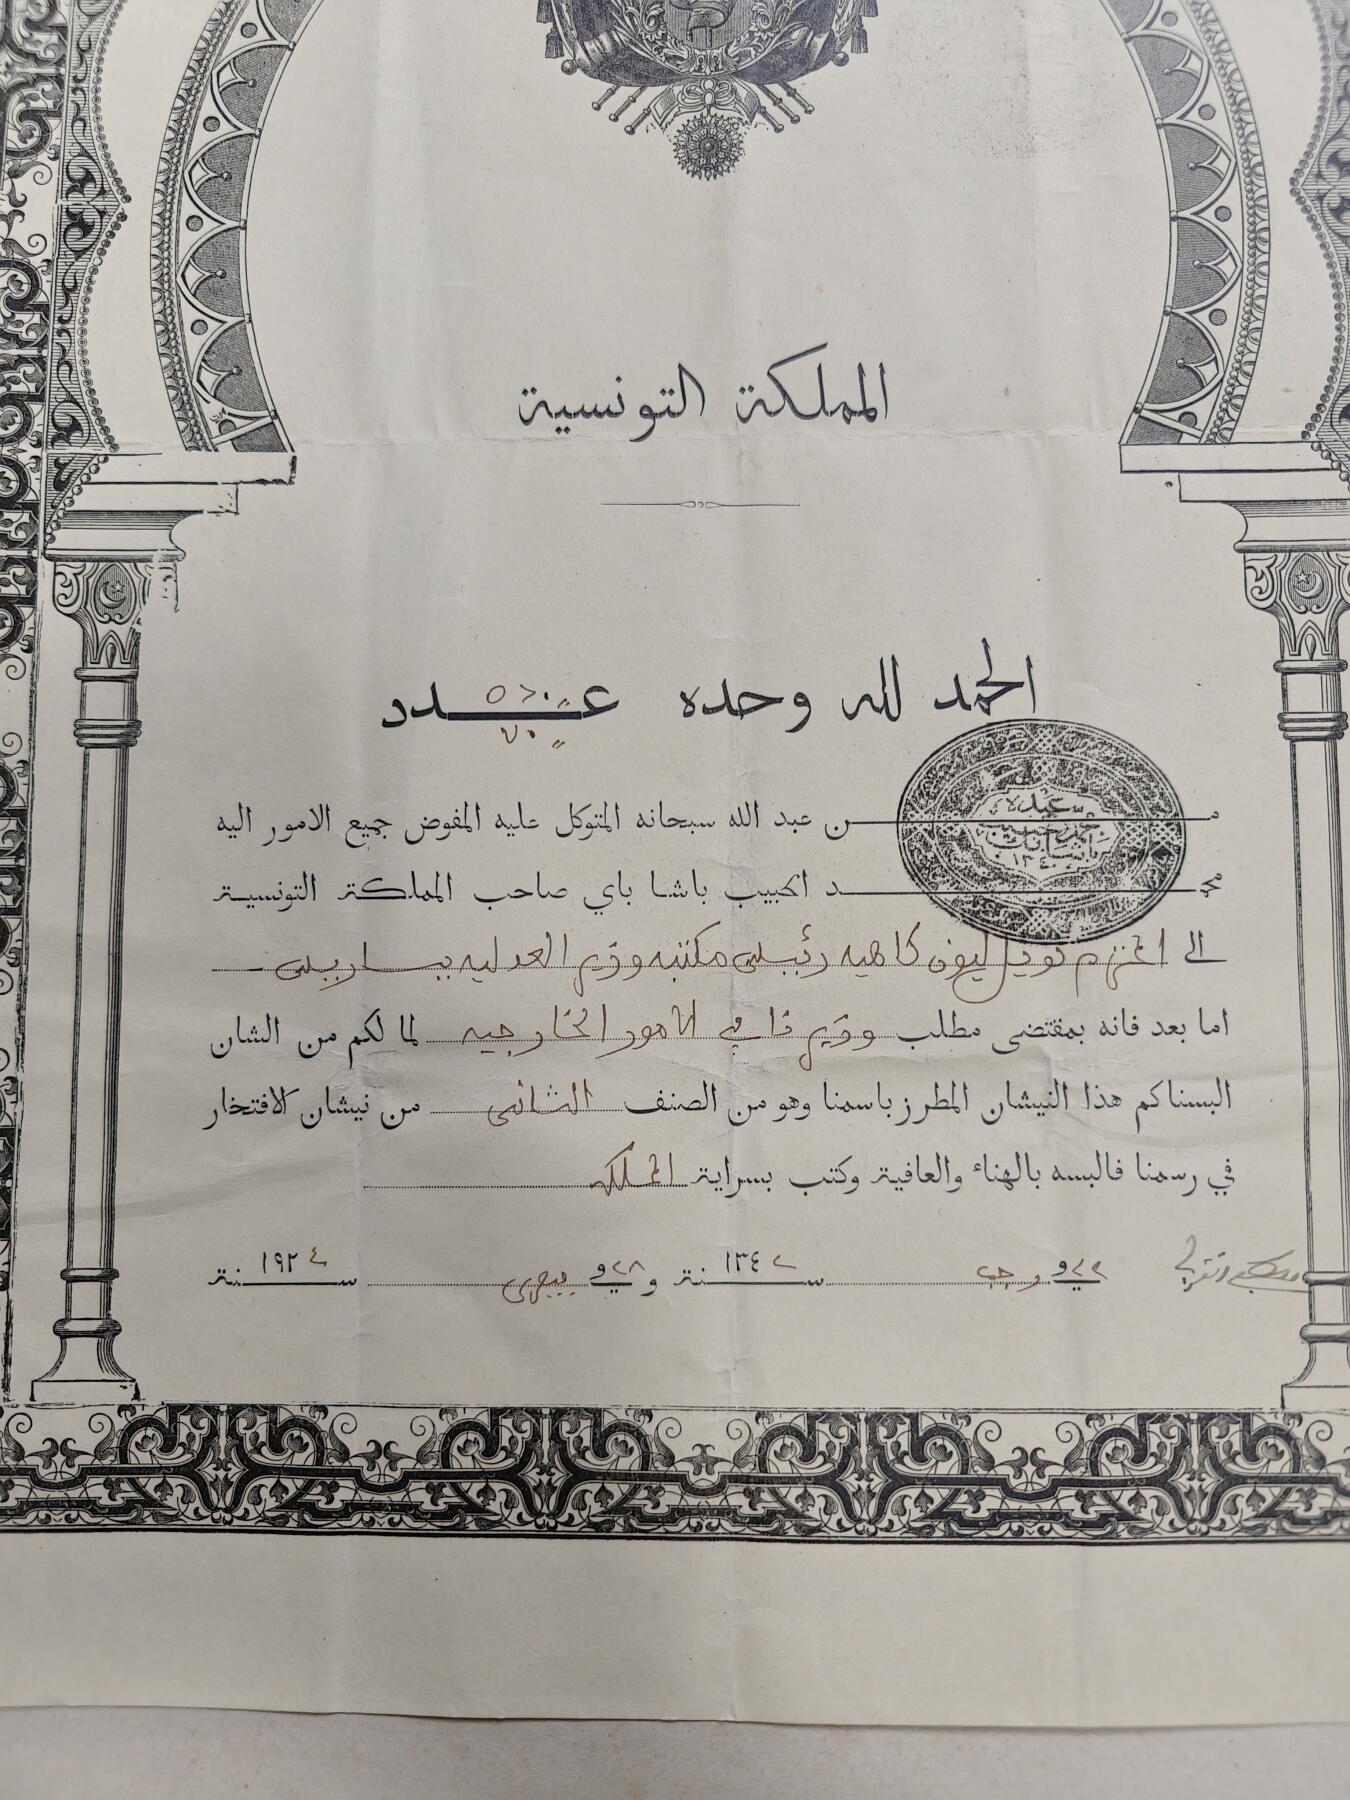 المملكة التونسية
الحمد لله وحده عدد
من عبد الله سبحانه المتوكل عليه المفوض جميع الامور اليه
محمد الحبيب باشا باي صاحب المملكة التونسية
الى المحترم نويل ليون كاهية رئيس مكتب وزير العدلية بباريس
اما بعد فانه بمقتضى مطلب وزيرنا في الامور الخارجية لما لكم من الشان
البسناكم هذا النيشان المطرز باسمنا وهو من الصنف الثاني من نيشان الافتخار
في رسمنا فالبسه بالهناء والعافية وكتب بسراية المملكة
وفي رجب سنة ١٣٤٢ وفي ٢٨ سنة ١٩٢٤
عبده
١٣٤٠